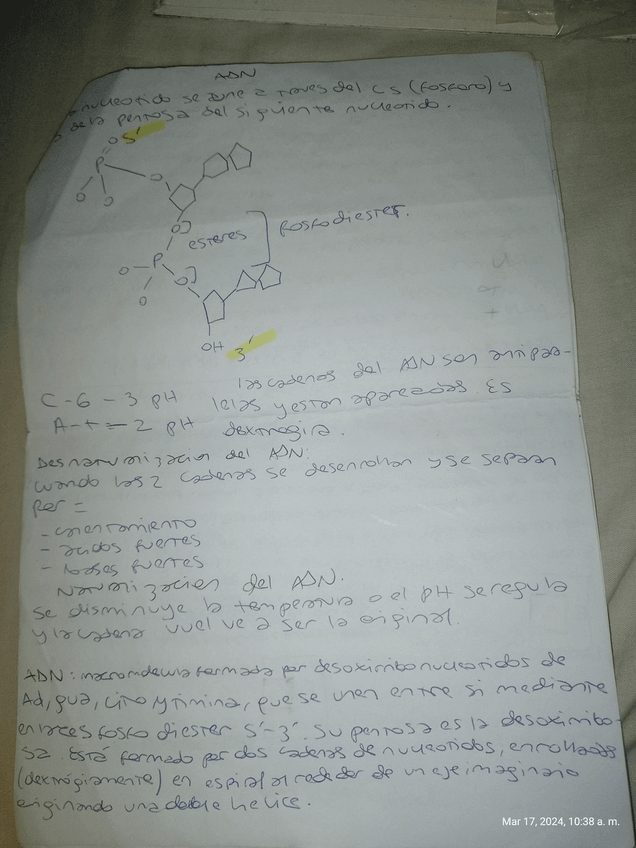 ADN
nucleotido se une a traves del C5 (fosforo) y
de la pentosa del siguiente nucleotido.
O 5'
P
O
O O
O
P
esteres
fosfodiester.
O
O
O
OH 3'
las cadenas del ADN son antipara-
C - G - 3 pH lelas y estan apareadas. Es
A - t = 2 pH dextrogira.
Desnaturalizacion del ADN:
cuando las 2 cadenas se desenrollan y se separan
Por =
- calentamiento
- acidos fuertes
- bases fuertes
Naturalizacion del ADN.
se disminuye la temperatura o el pH se regula
y la cadena vuelve a ser la original.
ADN: macromolecula formada por desoxirribonucleotidos de
Ad, gua, cito y timina, que se unen entre si mediante
enlaces fosfodiester 5'-3'. Su pentosa es la desoxirribo-
sa. Está formado por dos cadenas de nucleotidos, enrolladas
(dextrógiramente) en espiral alrededor de un eje imaginario
originando una doble helice.
Mar 17, 2024, 10:38 a. m.